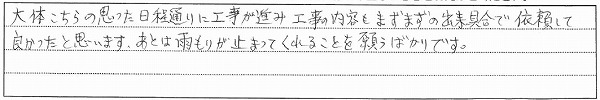 大体こちらの思った日程通りに工事が進み 工事の内容もまずまずの出来具合で依頼して
良かったと思います。あとは雨もりが止まってくれることを願うばかりです。